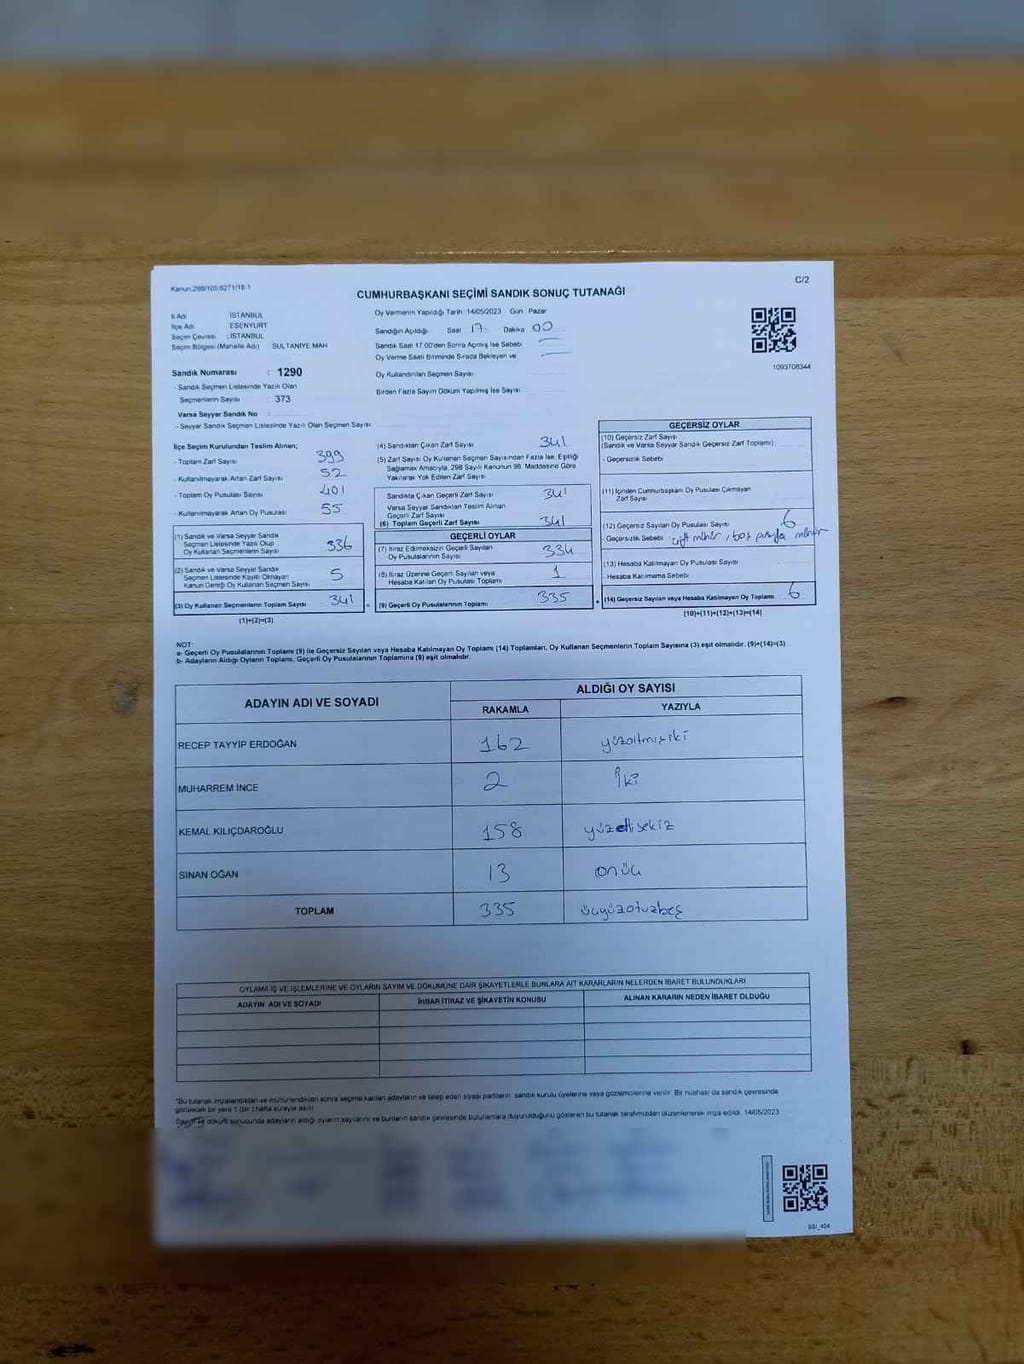 Kanun:298/105,6271/18-1
C/2
CUMHURBAŞKANI SEÇİMİ SANDIK SONUÇ TUTANAĞI
İl Adı : İSTANBUL
İlçe Adı : ESENYURT
Seçim Çevresi : İSTANBUL
Seçim Bölgesi (Mahalle Adı) SULTANİYE MAH
Oy Vermenin Yapıldığı Tarih: 14/05/2023 Gün : Pazar
Sandığın Açıldığı Saat 17: Dakika 00
Sandık Saat 17.00'den Sonra Açılmış İse Sebebi
Oy Verme Saati Bitiminde Sırada Bekleyen ve
Oy Kullandırılan Seçmen Sayısı
Birden Fazla Sayım Döküm Yapılmış İse Sayısı
1093708344
Sandık Numarası : 1290
- Sandık Seçmen Listesinde Yazılı Olan
Seçmenlerin Sayısı : 373
Varsa Seyyar Sandık No :
- Seyyar Sandık Seçmen Listesinde Yazılı Olan Seçmen Sayısı:
İlçe Seçim Kurulundan Teslim Alınan;
- Toplam Zarf Sayısı 399
- Kullanılmayarak Artan Zarf Sayısı 52
- Toplam Oy Pusulası Sayısı 401
- Kullanılmayarak Artan Oy Pusulası 55
(1) Sandık ve Varsa Seyyar Sandık
Seçmen Listesinde Yazılı Olup
Oy Kullanan Seçmenlerin Sayısı 336
(2) Sandık ve Varsa Seyyar Sandık
Seçmen Listesinde Kayıtlı Olmayan
Kanun Gereği Oy Kullanan Seçmen Sayısı 5
(3) Oy Kullanan Seçmenlerin Toplam Sayısı 341
(1)+(2)=(3)
(4) Sandıktan Çıkan Zarf Sayısı 341
(5) Zarf Sayısı Oy Kullanan Seçmen Sayısından Fazla İse, Eşitliği
Sağlamak Amacıyla, 298 Sayılı Kanunun 98. Maddesine Göre
Yakılarak Yok Edilen Zarf Sayısı
Sandıkta Çıkan Geçerli Zarf Sayısı 341
Varsa Seyyar Sandıktan Teslim Alınan
Geçerli Zarf Sayısı
(6) Toplam Geçerli Zarf Sayısı 341
GEÇERLİ OYLAR
(7) İtiraz Edilmeksizin Geçerli Sayılan
Oy Pusulalarının Sayısı 334
(8) İtiraz Üzerine Geçerli Sayılan veya
Hesaba Katılan Oy Pusulası Toplamı 1
(9) Geçerli Oy Pusulalarının Toplamı 335
GEÇERSİZ OYLAR
(10) Geçersiz Zarf Sayısı
(Sandık ve Varsa Seyyar Sandık Geçersiz Zarf Toplamı)
- Geçersizlik Sebebi
(11) İçinden Cumhurbaşkanı Oy Pusulası Çıkmayan
Zarf Sayısı
(12) Geçersiz Sayılan Oy Pusulası Sayısı 6
- Geçersizlik Sebebi çift mühür, boş pusula mühür
(13) Hesaba Katılmayan Oy Pusulası Sayısı
- Hesaba Katılmama Sebebi
(14) Geçersiz Sayılan veya Hesaba Katılmayan Oy Toplamı 6
(10)+(11)+(12)+(13)=(14)
NOT:
a- Geçerli Oy Pusulalarının Toplamı (9) ile Geçersiz Sayılan veya Hesaba Katılmayan Oy Toplamı (14) Toplamları, Oy Kullanan Seçmenlerin Toplam Sayısına (3) eşit olmalıdır. (9)+(14)=(3)
b- Adayların Aldığı Oyların Toplamı, Geçerli Oy Pusulalarının Toplamına (9) eşit olmalıdır.
ADAYIN ADI VE SOYADI
ALDIĞI OY SAYISI
RAKAMLA YAZIYLA
RECEP TAYYİP ERDOĞAN 162 yüzaltmışiki
MUHARREM İNCE 2 iki
KEMAL KILIÇDAROĞLU 158 yüzellisekiz
SİNAN OĞAN 13 onüç
TOPLAM 335 üçyüzotuzbeş
OYLAMA İŞ VE İŞLEMLERİNE VE OYLARIN SAYIM VE DÖKÜMÜNE DAİR ŞİKAYETLERLE BUNLARA AİT KARARLARIN NELERDEN İBARET BULUNDUKLARI
ADAYIN ADI VE SOYADI İHBAR İTİRAZ VE ŞİKAYETİN KONUSU ALINAN KARARIN NEDEN İBARET OLDUĞU
"Bu tutanak imzalandıktan ve mühürlendikten sonra seçime katılan adayların ve talep eden siyasi partilerin sandık kurulu üyelerine veya gözlemcilerine verilir. Bir nüshası da sandık çevresinde
görülecek bir yere 1 (bir) hafta süreyle asılır
Sayım ve döküm sonucunda adayların aldığı oyların sayılarını ve bunların sandık çevresinde bulunanlara duyurulduğunu gösteren bu tutanak tarafımızdan düzenlenerek imza edildi. 14/05/2023
SSİ_404